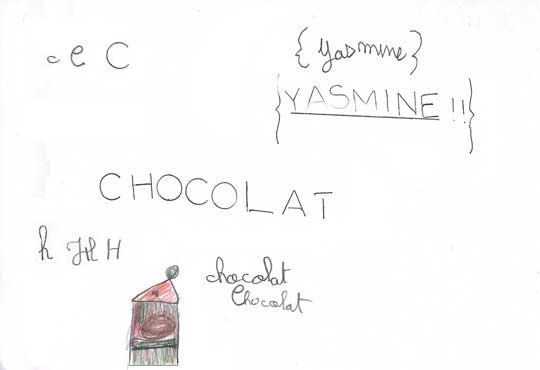 c C C
{ Yasmine }
{ YASMINE !! }
CHOCOLAT
h H H
chocolat
Chocolat